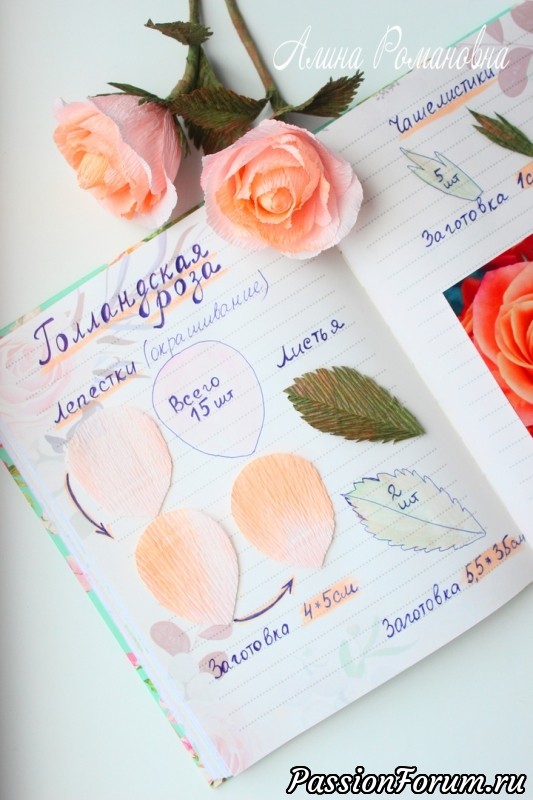 Алина Романовна
Голландская
роза
(окрашивание)
Лепестки
Всего
15 шт
Листья
2
шт
Заготовка 4*5см
Заготовка 5,5*3,5см
Чашелистики
5
шт
Заготовка
PassionForum.ru